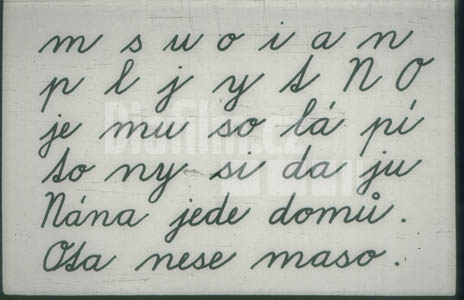 m s u o i a n
p l j y t N O
je mu so lá pí
to ny si da ju
Nána jede domů.
Ota nese maso.
Diafilm.cz